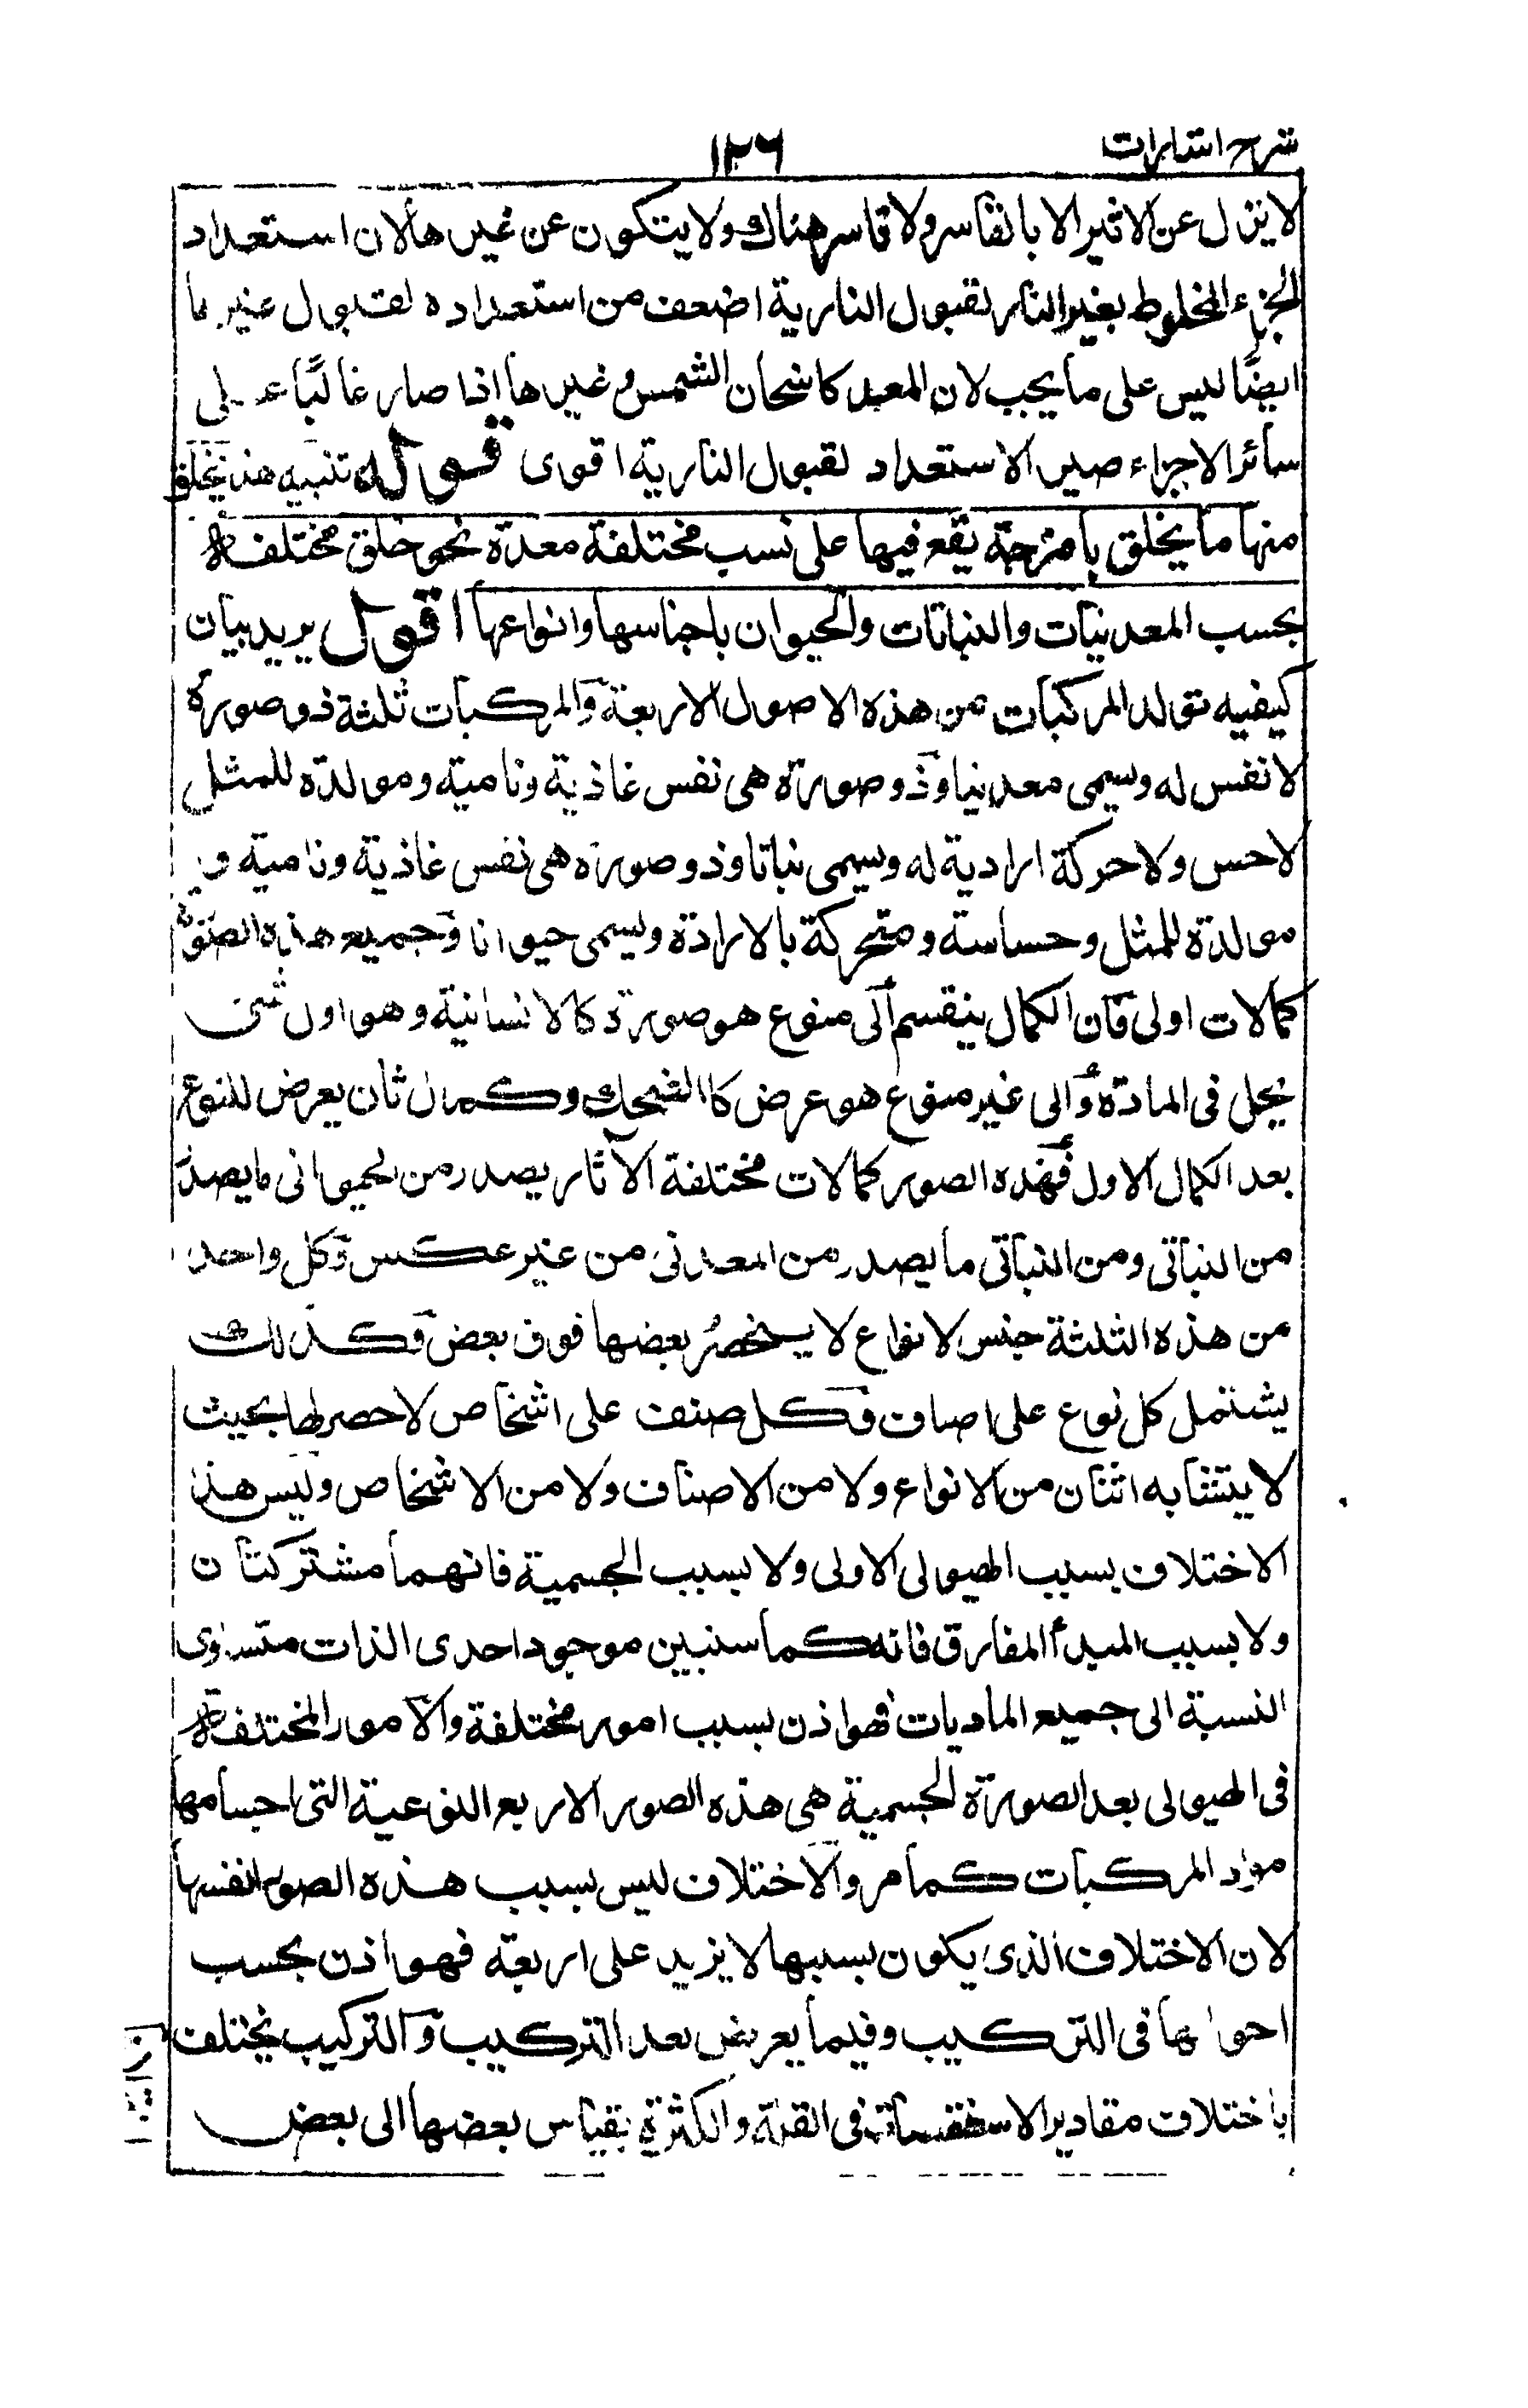 شرح اشارات
۱۲۶
لا ينزل عن الاثير الا بالقاسر ولا قاسر هناك ولا يتكون عن غيرها لان استعداد
الجزء المخلوط بغير النار لقبول النارية اضعف من استعداده لقبول غيرها
ايضًا ليس على ما يجب لان المعد كاسخان الشمس وغيرها اذا صار غالبًا على
سائر الاجزاء صير الاستعداد لقبول النارية اقوى قوله تنبيه هذه يخلق
منها ما يخلق بامزجة يقع فيها على نسب مختلفة معدة نحو خلق مختلفة
بحسب المعدنيات والنباتات والحيوان باجناسها وانواعها اقول يريد بيان
كيفيه تولد المركبات من هذه الاصول الاربعة والمركبات ثلثة ذو صورة
لا نفس له ويسمى معدنيا وذو صورة هى نفس غاذية ونامية ومولدة للمثل
لا حس ولا حركة ارادية له ويسمى نباتا وذو صورة هى نفس غاذية ونامية و
مولدة للمثل وحساسة ومتحركة بالارادة ويسمى حيوانا وجميع هذه الصور
كمالات اولى فان الكمال ينقسم الى منوع هو صورة كالانسانية وهو اول شئ
يحل فى المادة والى غير منوع هو عرض كالضحك وكمال ثان يعرض للنوع
بعد الكمال الاول فهذه الصور كمالات مختلفة الآثار يصدر من الحيوانى ما يصدر
من النباتى ومن النباتى ما يصدر من المعدنى من غير عكس وكل واحد
من هذه الثلثة جنس لانواع لا ينحصر بعضها فوق بعض وكذلك
يشتمل كل نوع على اصناف وكل صنف على اشخاص لا حصر لها بحيث
لا يتشابه اثنان من الانواع ولا من الاصناف ولا من الاشخاص وليس هذا
الاختلاف بسبب الهيولى الاولى ولا بسبب الجسمية فانهما مشتركتان
ولا بسبب المبدأ المفارق فانه كما سنبين موجود احدى الذات متساوى
النسبة الى جميع الماديات فهو اذن بسبب امور مختلفة والامور المختلفة
فى الهيولى بعد الصورة الجسمية هى هذه الصور الاربع النوعية التى اجسامها
مواد المركبات كما مر والاختلاف ليس بسبب هذه الصور انفسها
لان الاختلاف الذى يكون بسببها لا يزيد على اربعة فهو اذن بحسب
احوالها فى التركيب وفيما يعرض بعد التركيب والتركيب يختلف
باختلاف مقادير الاسطقسات فى القلة والكثرة بقياس بعضها الى بعض